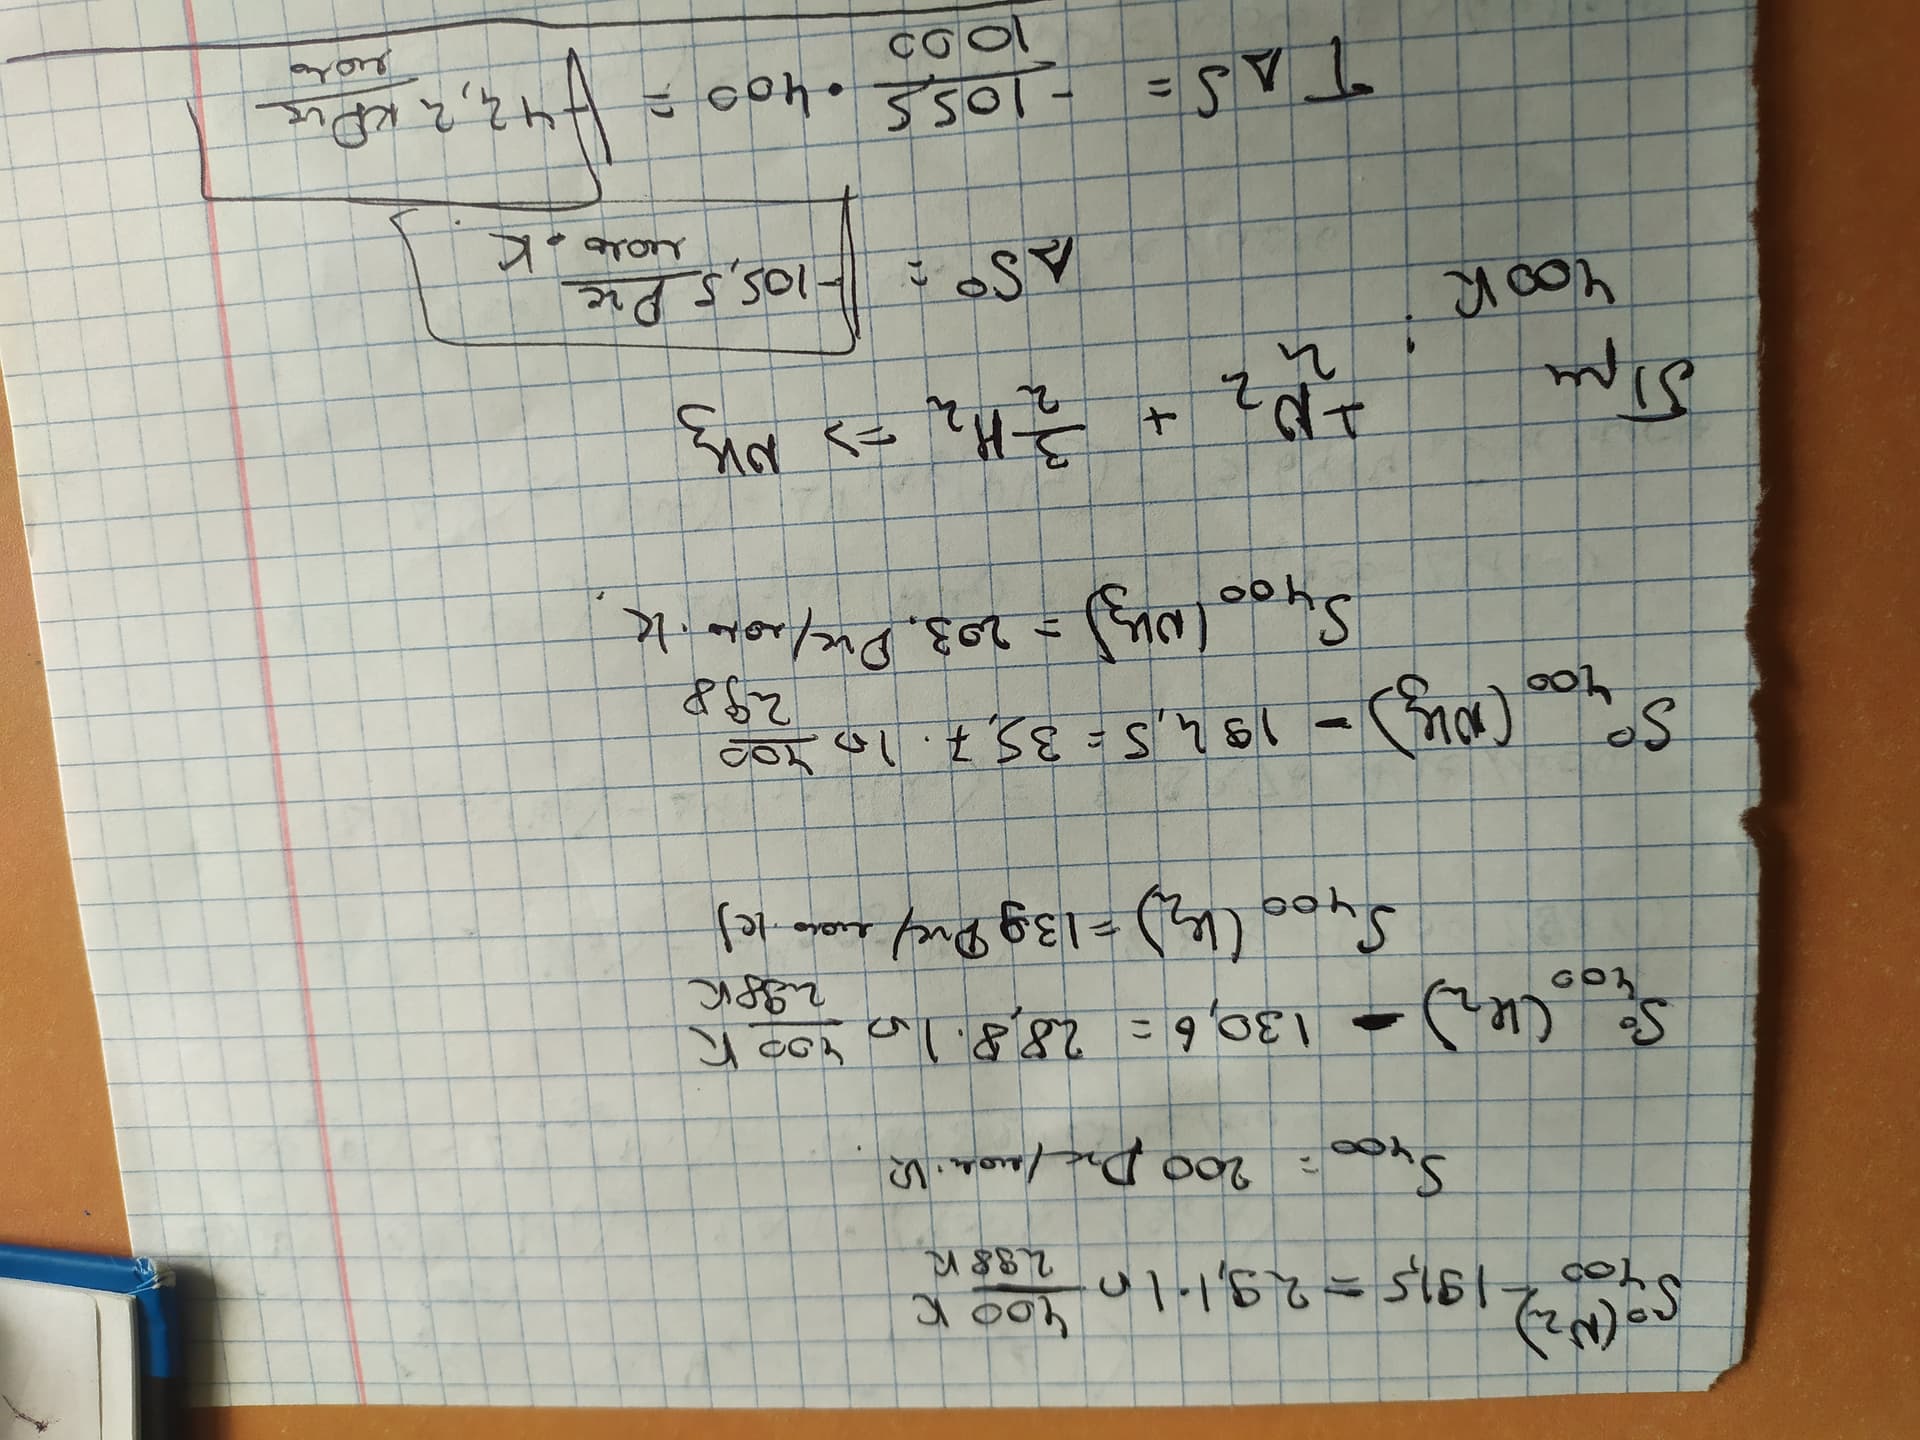 S°₄₀₀(N₂) - 191,5 = 29,1·ln 400 K / 298 K
S₄₀₀ = 200 Дж/моль·К.
S°₄₀₀(H₂) - 130,6 = 28,8·ln 400 K / 298K
S₄₀₀(H₂) = 139 Дж/моль·К)
S°₄₀₀(NH₃) - 192,5 = 35,7·ln 400 / 298
S₄₀₀(NH₃) = 203. Дж/моль·К.
1/2 N₂ + 3/2 H₂ => NH₃
400K: ΔS° = -105,5 Дж / моль·К
TΔS = -105,5 / 1000 · 400 = -42,2 кДж / моль